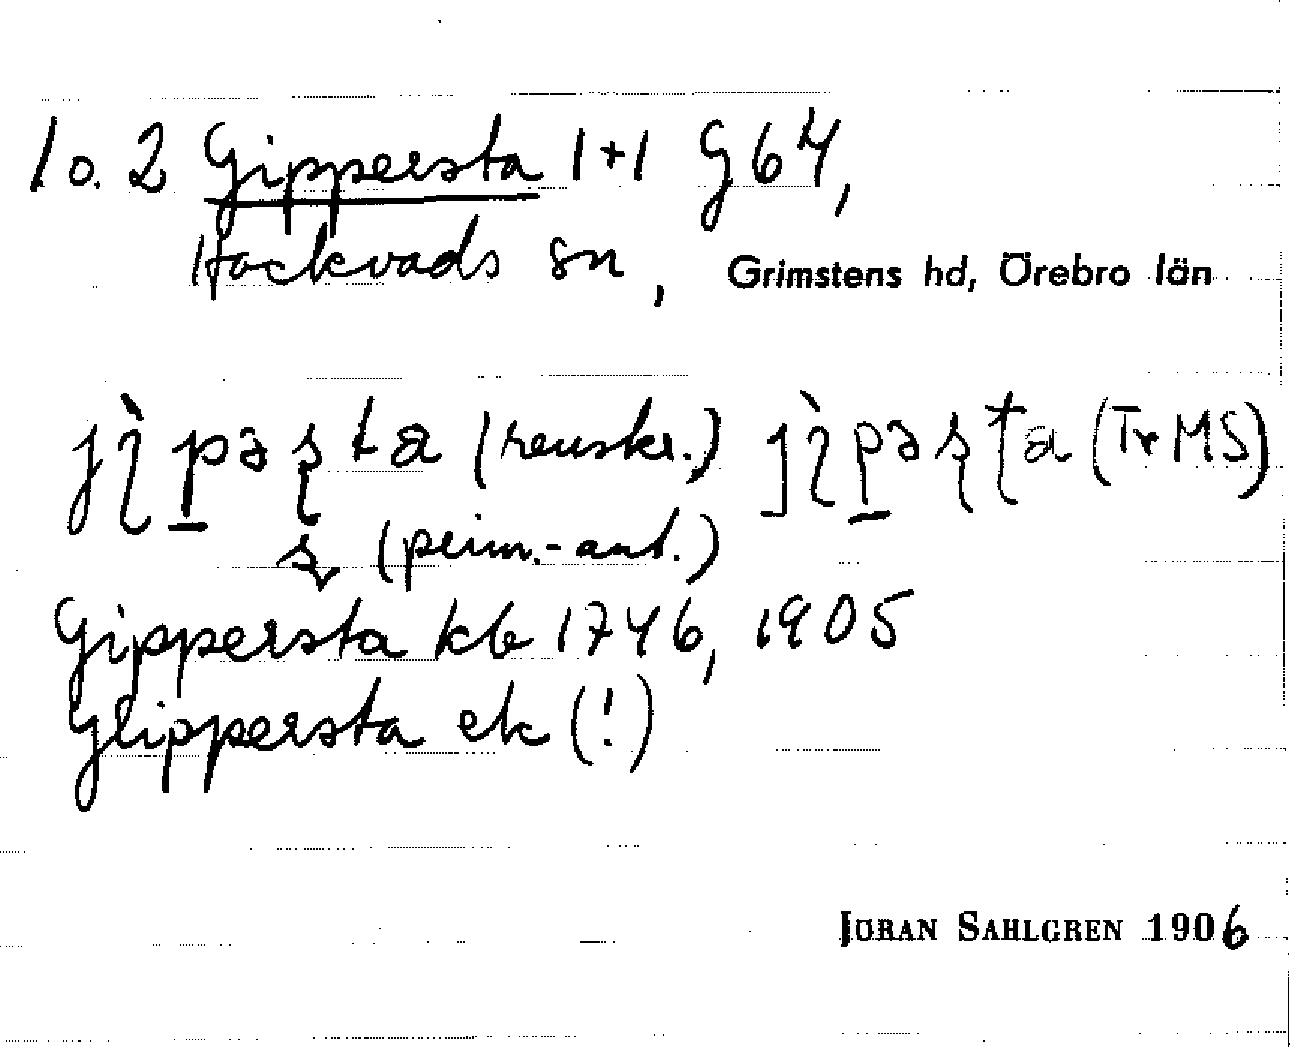 1 o. 2 Gippersta 1+1 G 64,
Hackvads sn, Grimstens hd, Örebro län
(renskr.) (Tr MS)
(prim.-ant.)
Gippersta kb 1746, 1905
Glippersta ek (!)
JÖRAN SAHLGREN 1906